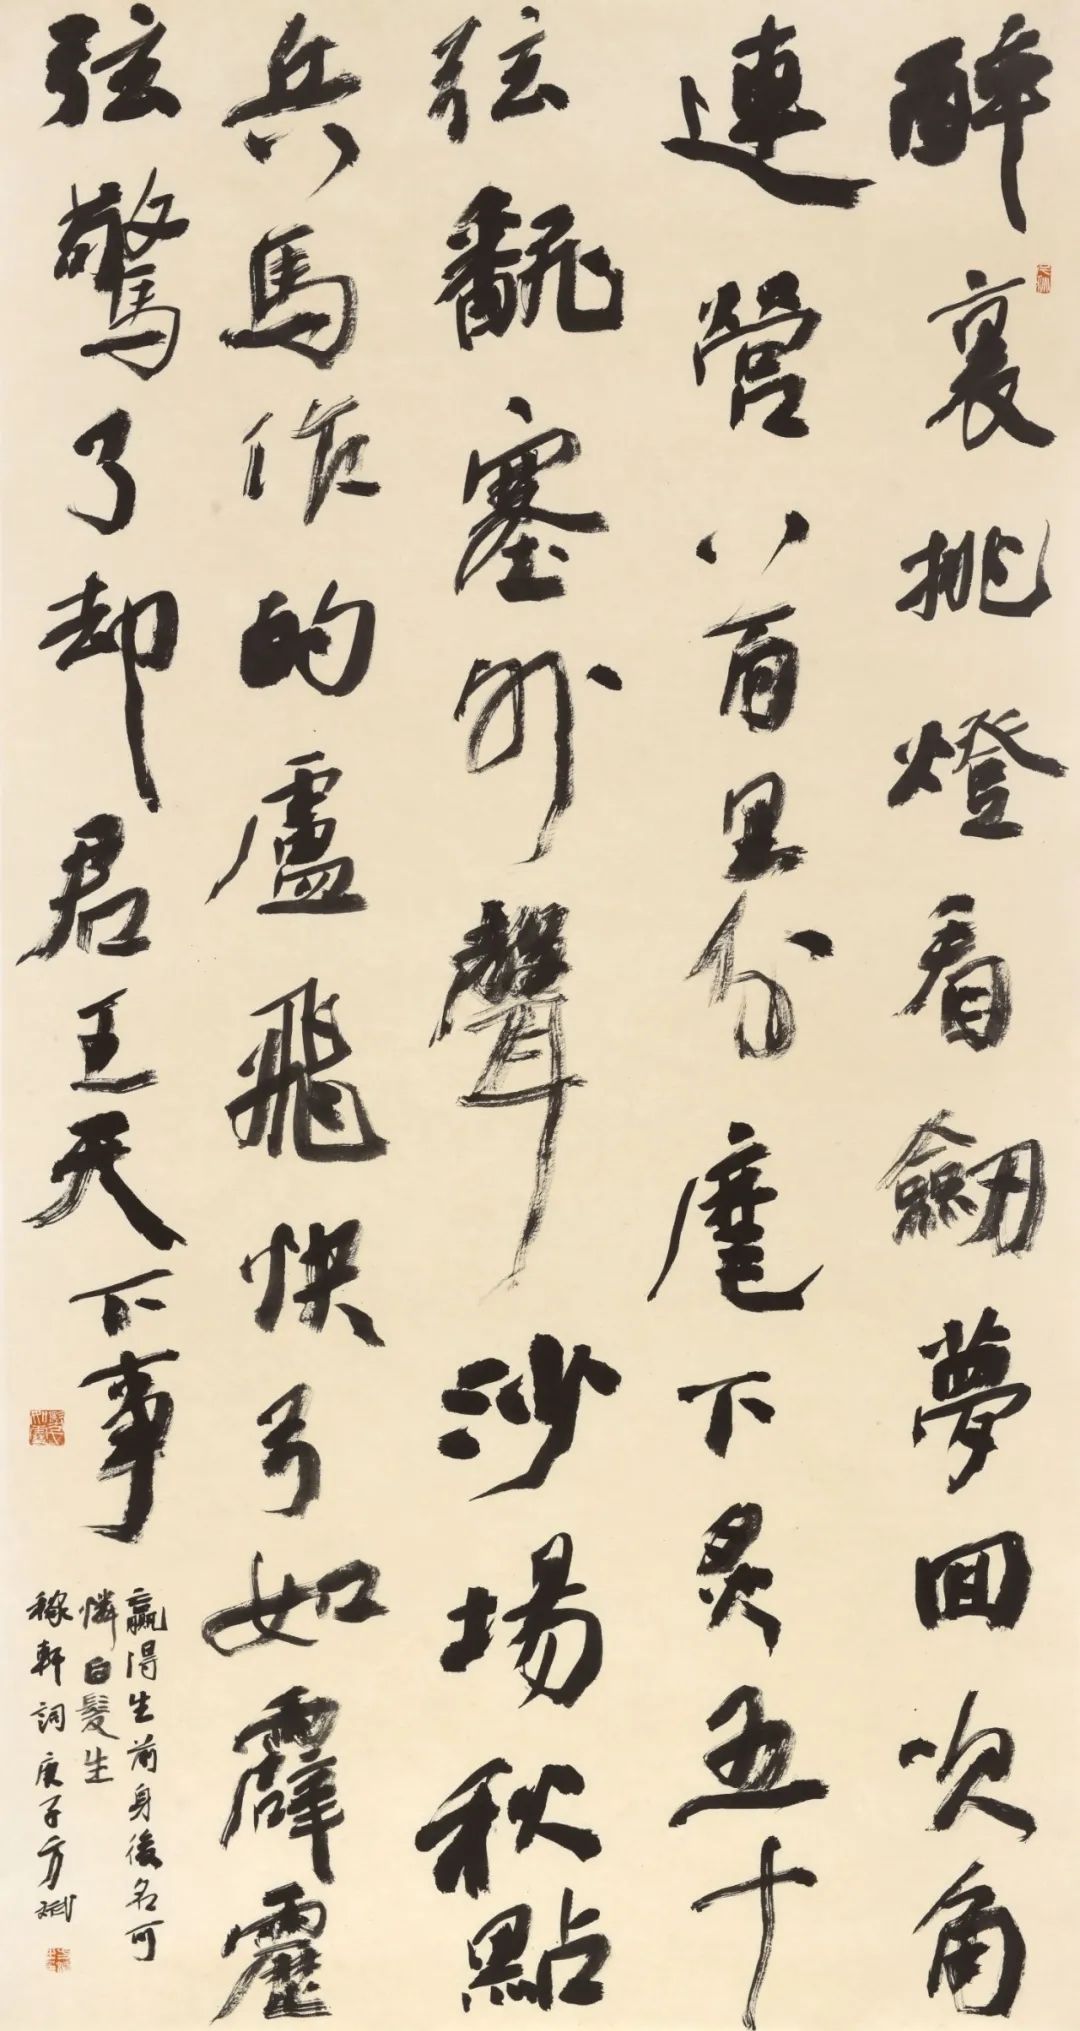 醉裏挑燈看劒夢回吹角
連營八百里分麾下炙五十
弦翻塞外聲沙場秋點
兵馬作的盧飛快弓如霹靂
弦驚了却君王天下事
贏得生前身後名可
憐白髮生
稼軒詞庚子方斌